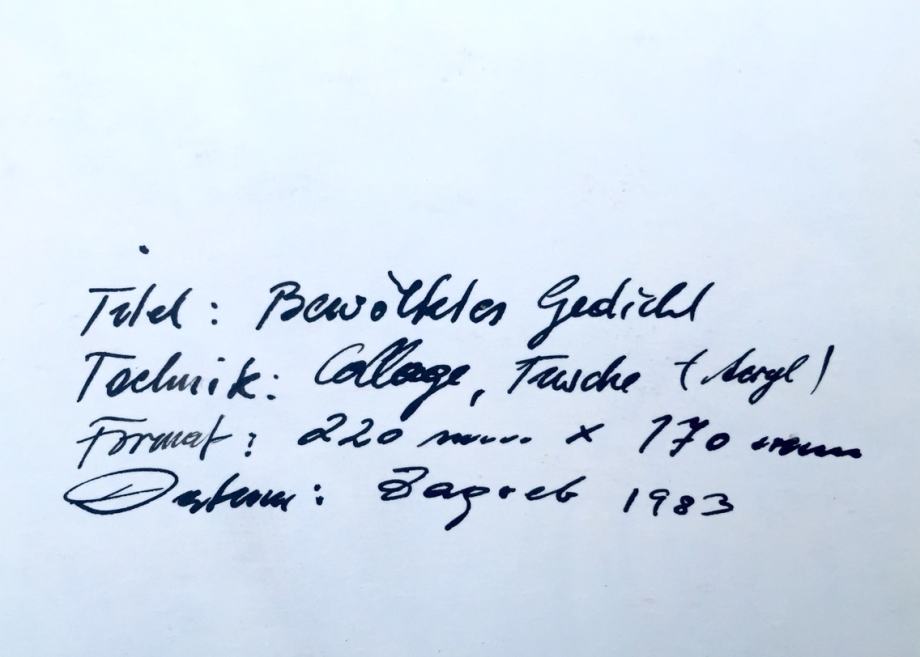 Titel: Bewölktes Gedicht
Technik: Collage, Tusche (Acryl)
Format: 220 mm x 170 mm
Datum: Zagreb 1983